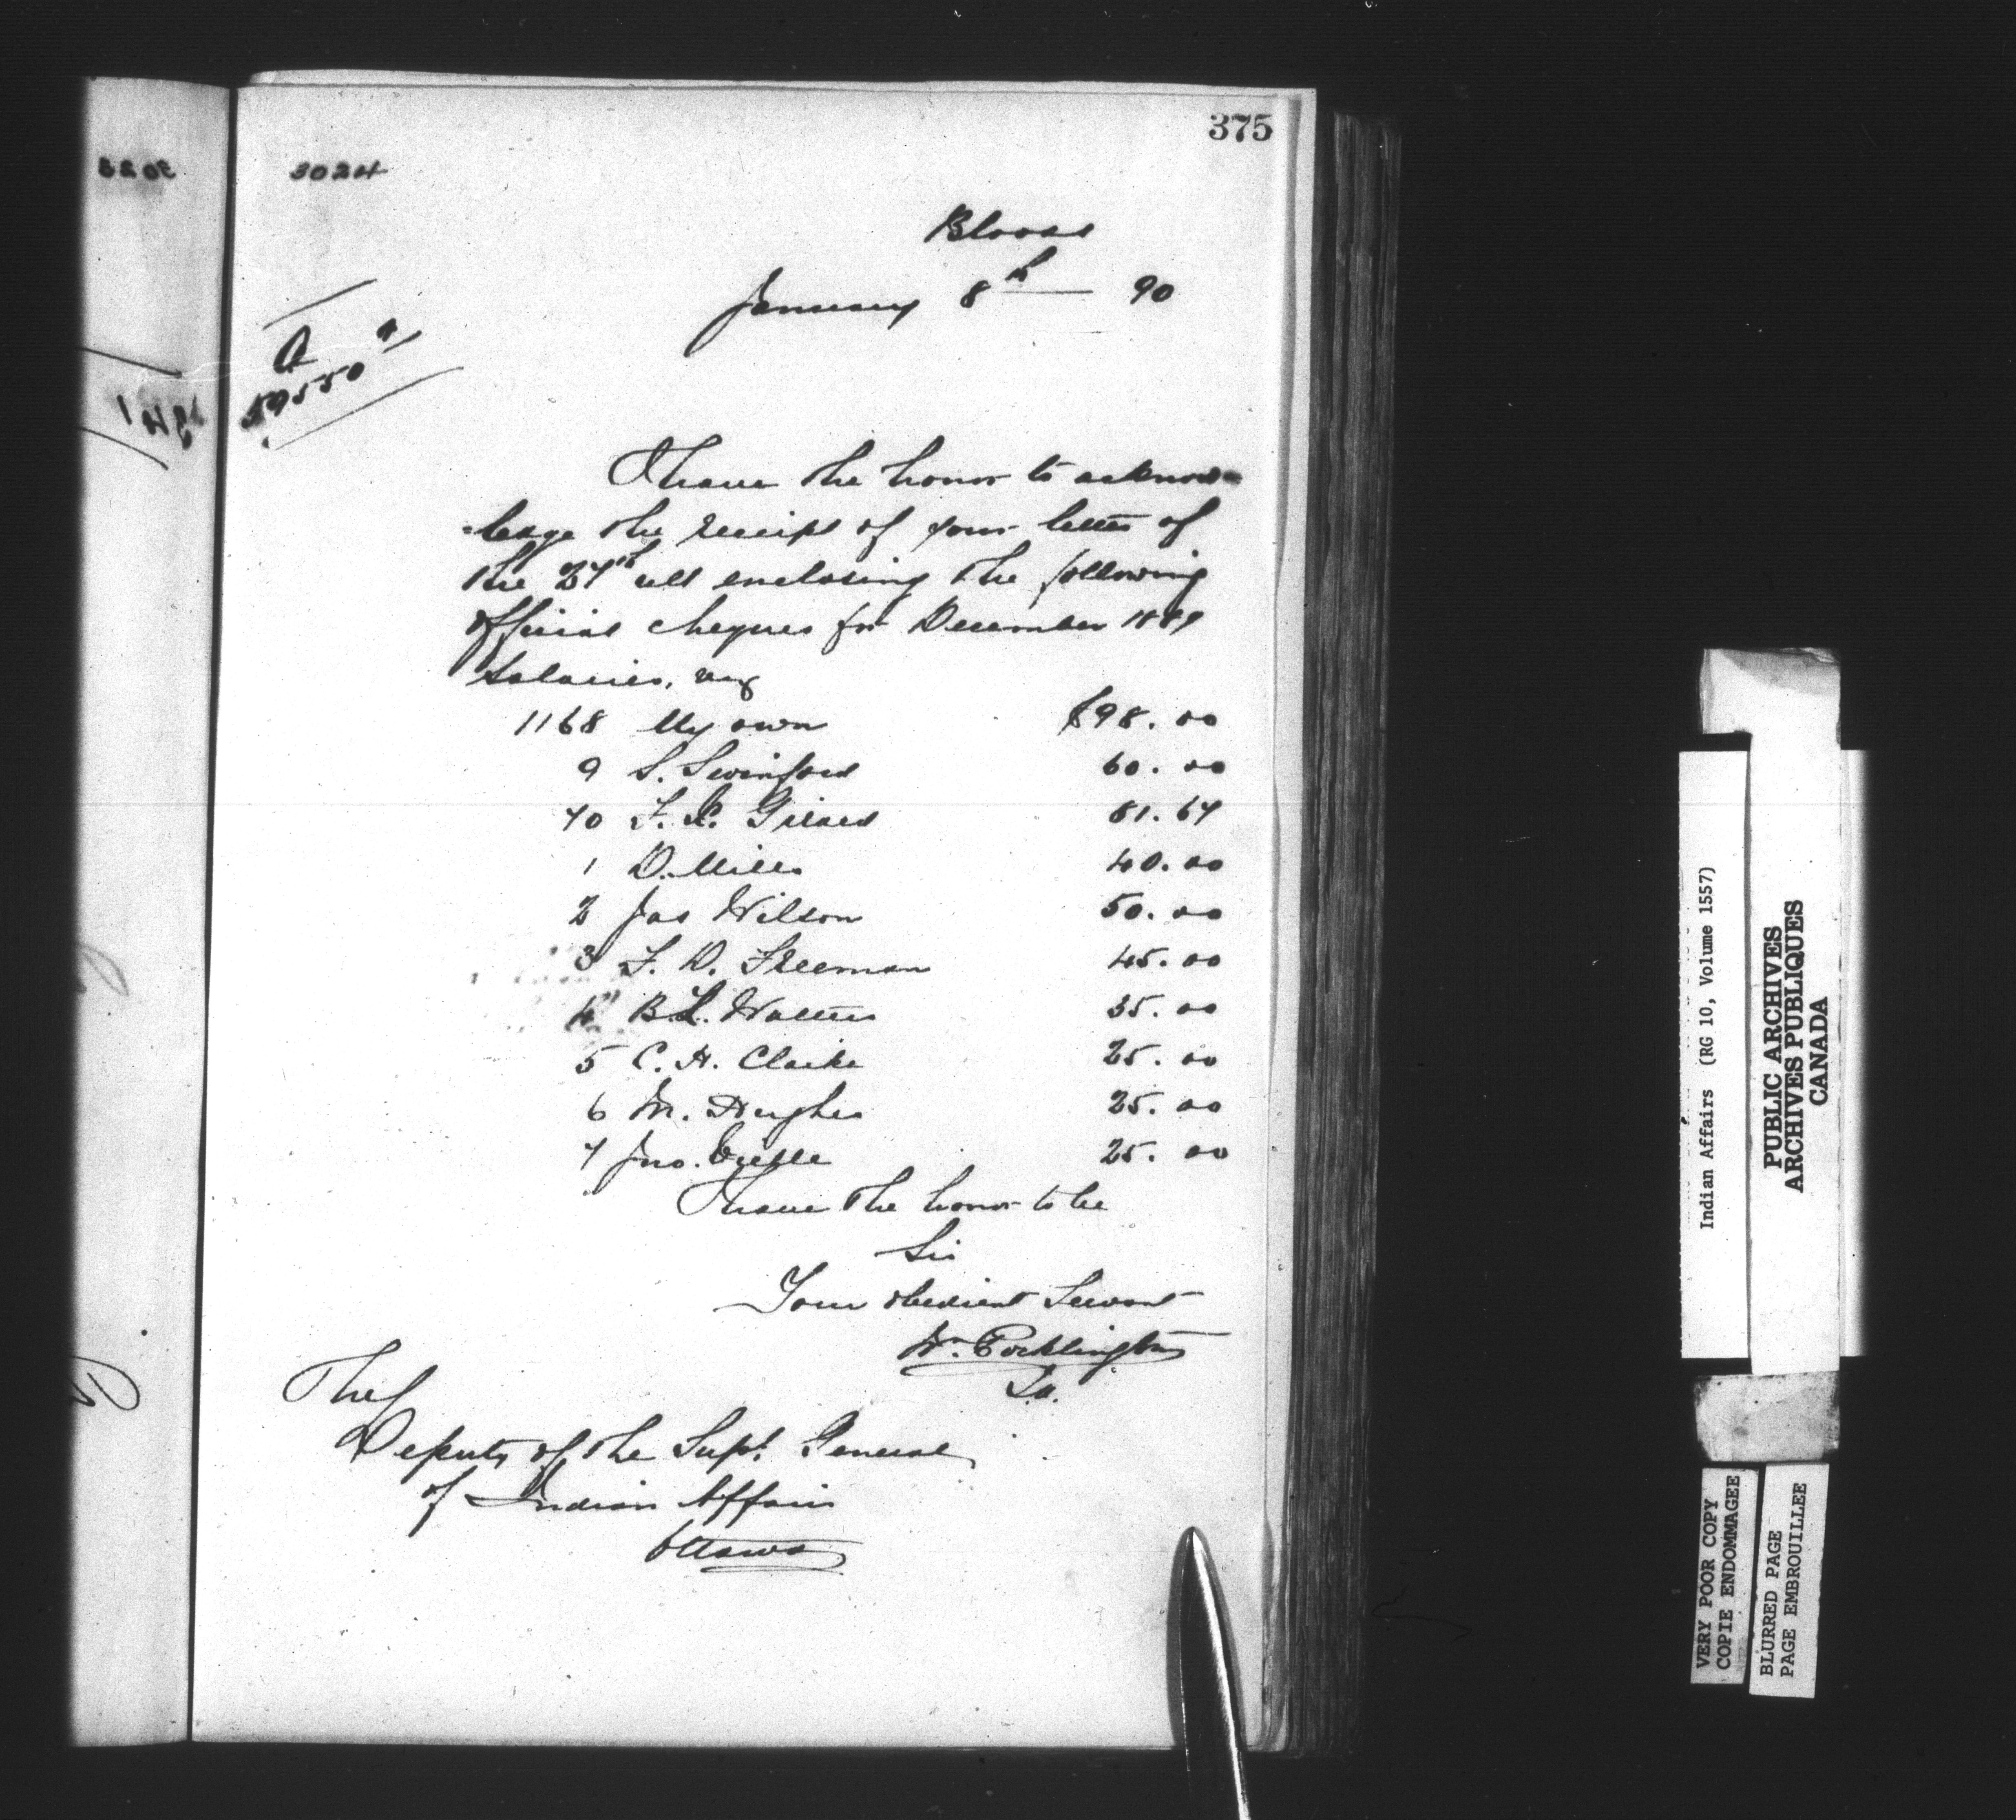 375
3024
Bloods
January 8th 90
A
59550
I have the honor to acknow-
-ledge the receipt of your letter of
the 27th ult enclosing the following
official cheques for December 1889
Salaries, viz
1168 My own $98.00
9 S. Swinford 60.00
70 F. X. Girard 81.67
1 D. Mills 40.00
2 Jas Wilson 50.00
3 F. D. Freeman 45.00
4 B.L. Walters 35.00
5 C. H. Clarke 25.00
6 M. Hughes 25.00
7 Jno. 25.00
I have the honor to be
Sir
Your obedient Servant
W. Pocklington
I.A.
The
Deputy of the Supt. General
of Indian Affairs
Ottawa
Indian Affairs (RG 10, Volume 1557)
PUBLIC ARCHIVES
ARCHIVES PUBLIQUES
CANADA
VERY POOR COPY
COPIE ENDOMMAGEE
BLURRED PAGE
PAGE EMBROUILLEE